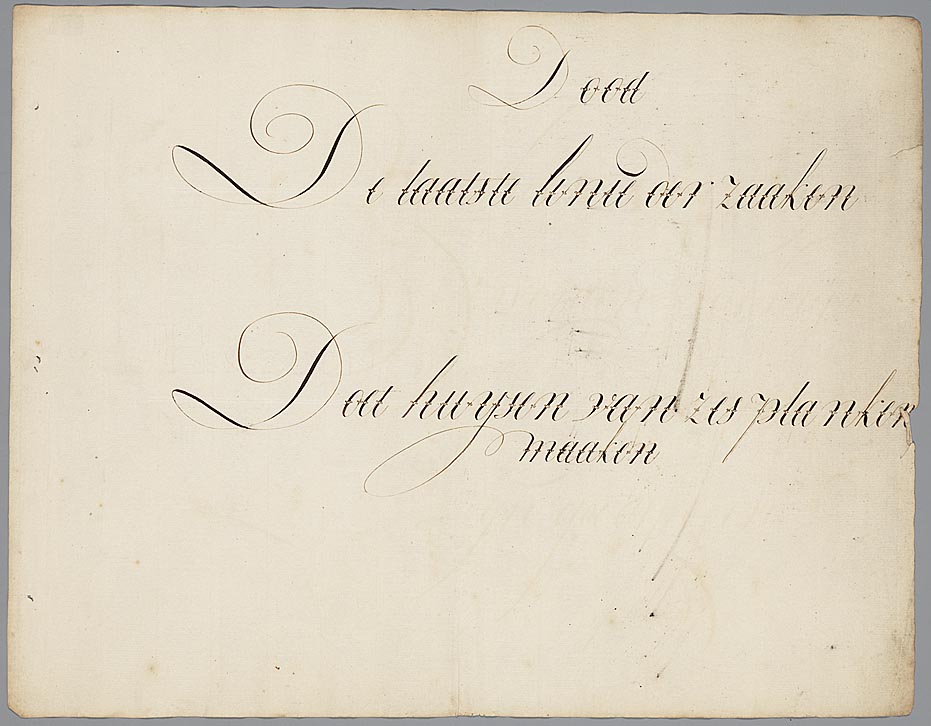 Dood
De laatste lonie der zaaken
Doet huysen van zes planken
maaken